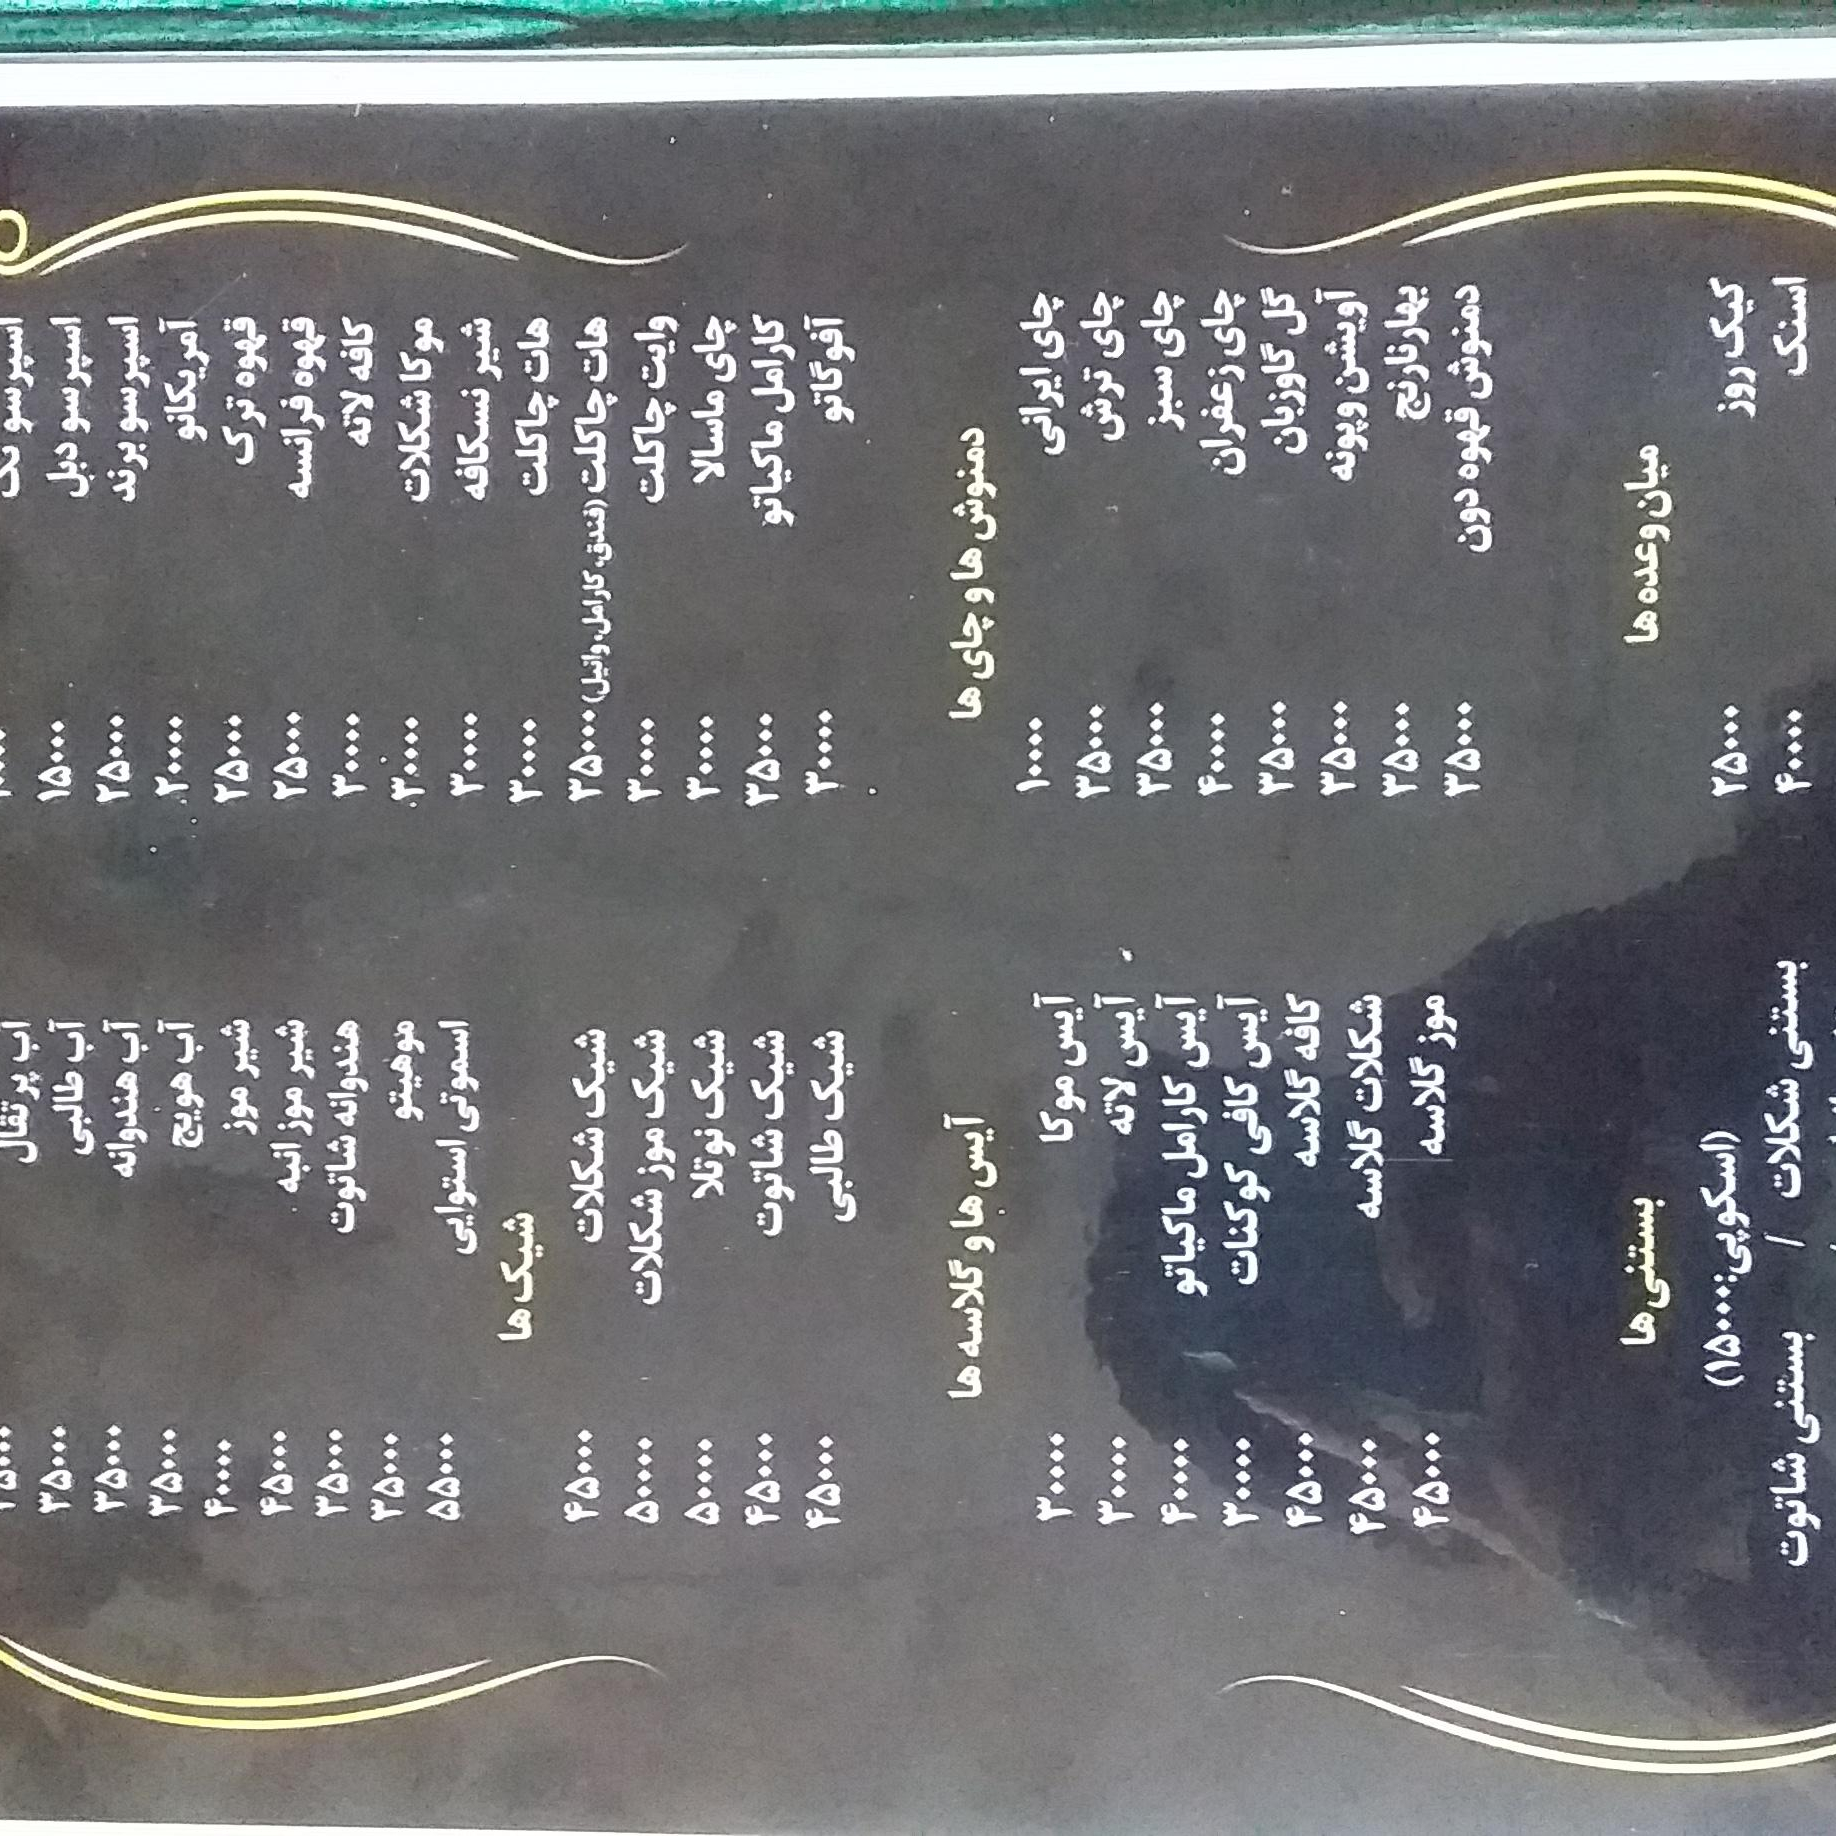 اسپرسو تک
اسپرسو دبل ۱۵۰۰۰
اسپرسو برند ۲۵۰۰۰
آمریکانو ۲۰۰۰۰
قهوه ترک ۲۵۰۰۰
قهوه فرانسه ۲۵۰۰۰
کافه لاته ۳۰۰۰۰
موکا شکلات ۳۰۰۰۰
شیر نسکافه ۳۰۰۰۰
هات چاکلت ۳۰۰۰۰
هات چاکلت (فندق، کارامل، وانیل) ۳۵۰۰۰
وایت چاکلت ۳۰۰۰۰
چای ماسالا ۳۰۰۰۰
کارامل ماکیاتو ۳۵۰۰۰
آفوگاتو ۳۰۰۰۰
دمنوش ها و چای ها
چای ایرانی ۱۰۰۰۰
چای ترش ۳۵۰۰۰
چای سبز ۳۵۰۰۰
چای زعفران ۴۰۰۰۰
گل گاوزبان ۳۵۰۰۰
آویشن و پونه ۳۵۰۰۰
بهارنارنج ۳۵۰۰۰
دمنوش قهوه دون ۳۵۰۰۰
میان وعده ها
کیک روز ۲۵۰۰۰
اسنک ۴۰۰۰۰
آب پرتقال
آب طالبی ۳۵۰۰۰
آب هندوانه ۳۵۰۰۰
آب هویج ۳۵۰۰۰
شیر موز ۴۰۰۰۰
شیر موز انبه ۴۵۰۰۰
هندوانه شاتوت ۳۵۰۰۰
موهیتو ۳۵۰۰۰
اسموتی استوایی ۵۵۰۰۰
شیک ها
شیک شکلات ۴۵۰۰۰
شیک موز شکلات ۵۰۰۰۰
شیک نوتلا ۵۰۰۰۰
شیک شاتوت ۴۵۰۰۰
شیک طالبی ۴۵۰۰۰
آیس ها و گلاسه ها
آیس موکا ۳۰۰۰۰
آیس لاته ۳۰۰۰۰
آیس کارامل ماکیاتو ۴۰۰۰۰
آیس کافی کوکنات ۳۰۰۰۰
کافه گلاسه ۴۵۰۰۰
شکلات گلاسه ۴۵۰۰۰
موز گلاسه ۴۵۰۰۰
بستنی ها
(اسکوپی:۱۵۰۰۰)
بستنی شکلات / بستنی شاتوت